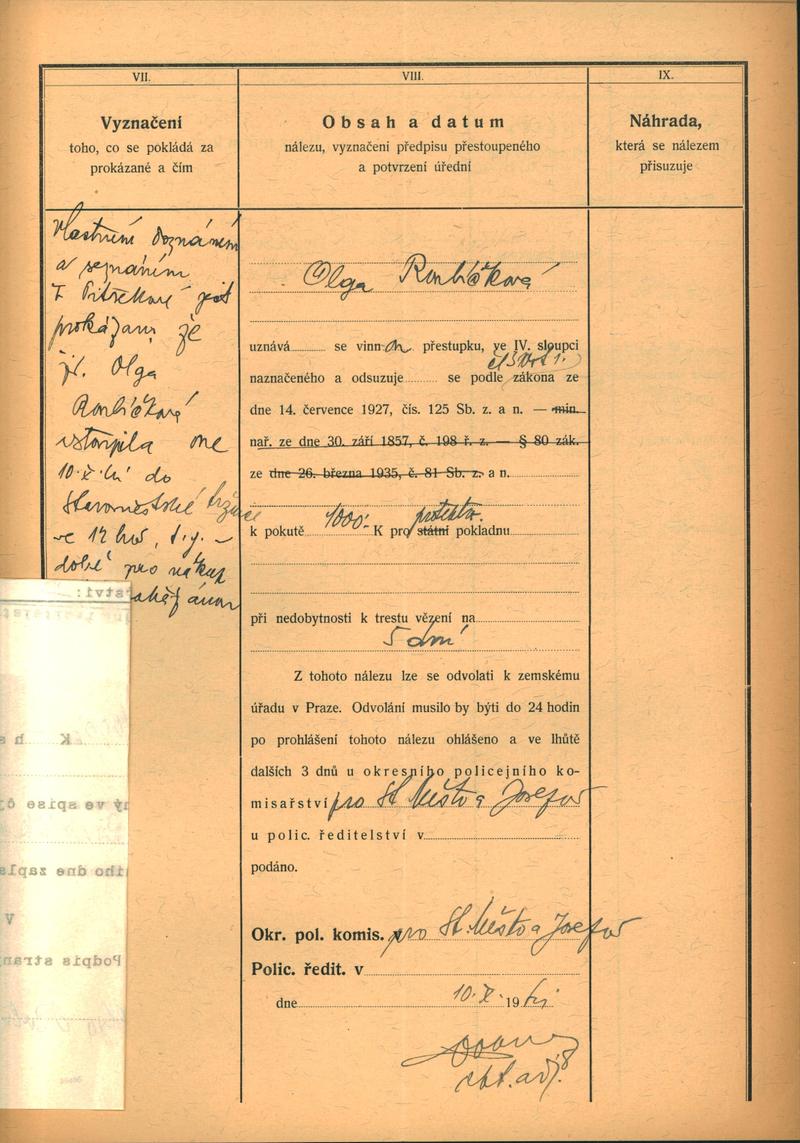 VII.
VIII.
IX.
Vyznačení
toho, co se pokládá za
prokázané a čím
Obsah a datum
nálezu, vyznačení předpisu přestoupeného
a potvrzení úřední
Náhrada,
která se nálezem
přisuzuje
Vlastním doznáním
a seznáním
prokázano, že
Olga
vstoupila dne
10. X. do
Staroměstské tržnice
ve 12 hod, t. j. v
době pro nákup
Olga
uznává se vinnou přestupku, ve IV. sloupci
naznačeného a odsuzuje se podle zákona ze
dne 14. července 1927, čís. 125 Sb. z. a n. — min.
nař. ze dne 30. září 1857, č. 198 ř. z. — § 80 zák.
ze dne 26. března 1935, č. 81 Sb. z. a n.
k pokutě 1000.- K pro státní protekt. pokladnu
při nedobytnosti k trestu vězení na
5 dní
Z tohoto nálezu lze se odvolati k zemskému
úřadu v Praze. Odvolání musilo by býti do 24 hodin
po prohlášení tohoto nálezu ohlášeno a ve lhůtě
dalších 3 dnů u okresního policejního ko-
misařství pro St. Město a Josefov
u polic. ředitelství v
podáno.
Okr. pol. komis. pro St. Město a Josefov
Polic. ředit. v
dne 10. X. 19
K
ný ve spise
ního dne zapla
V
Podpis stran